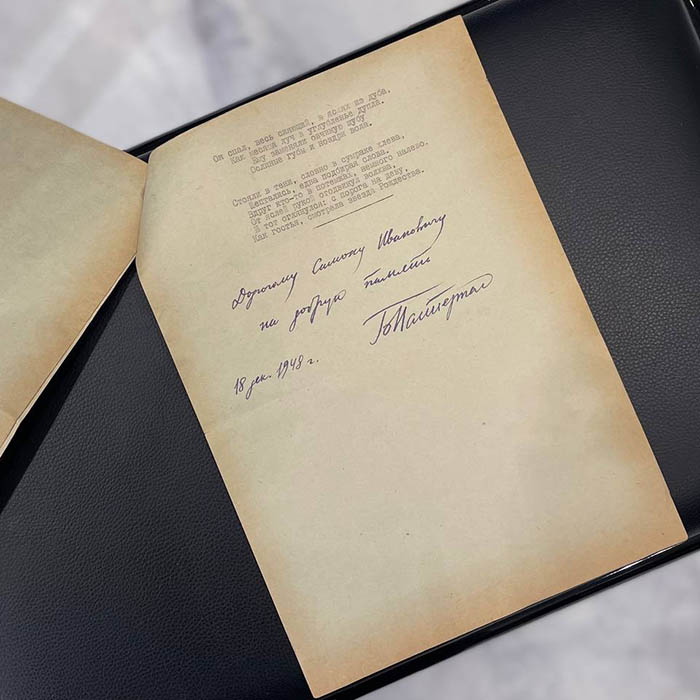 Он спал, весь сияющий, в яслях из дуба,
Как месяца луч в углубленье дупла.
Ему заменяли овчинную шубу
Ослиные губы и ноздри вола.
Стояли в тени, словно в сумраке хлева,
Шептались, едва подбирая слова.
Вдруг кто-то в потемках, немного налево
От яслей рукой отодвинул волхва,
И тот оглянулся: с порога на деву,
Как гостья, смотрела звезда Рождества.
Дорогому Симону Ивановичу
на добрую память
БПастернак
18 дек. 1948 г.